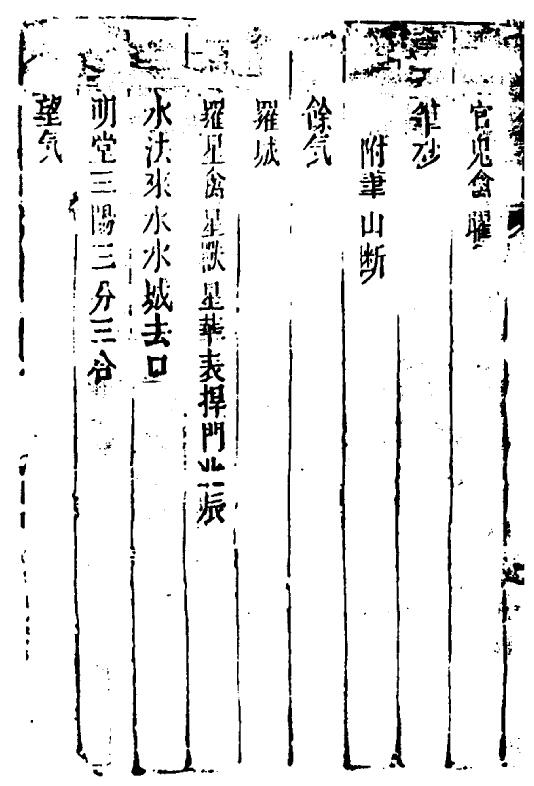 官鬼禽曜
雜砂
附筆山断
餘气
羅城
羅星禽星獸星華表捍門北辰
水法來水水城去口
明堂三陽三分三合
望气